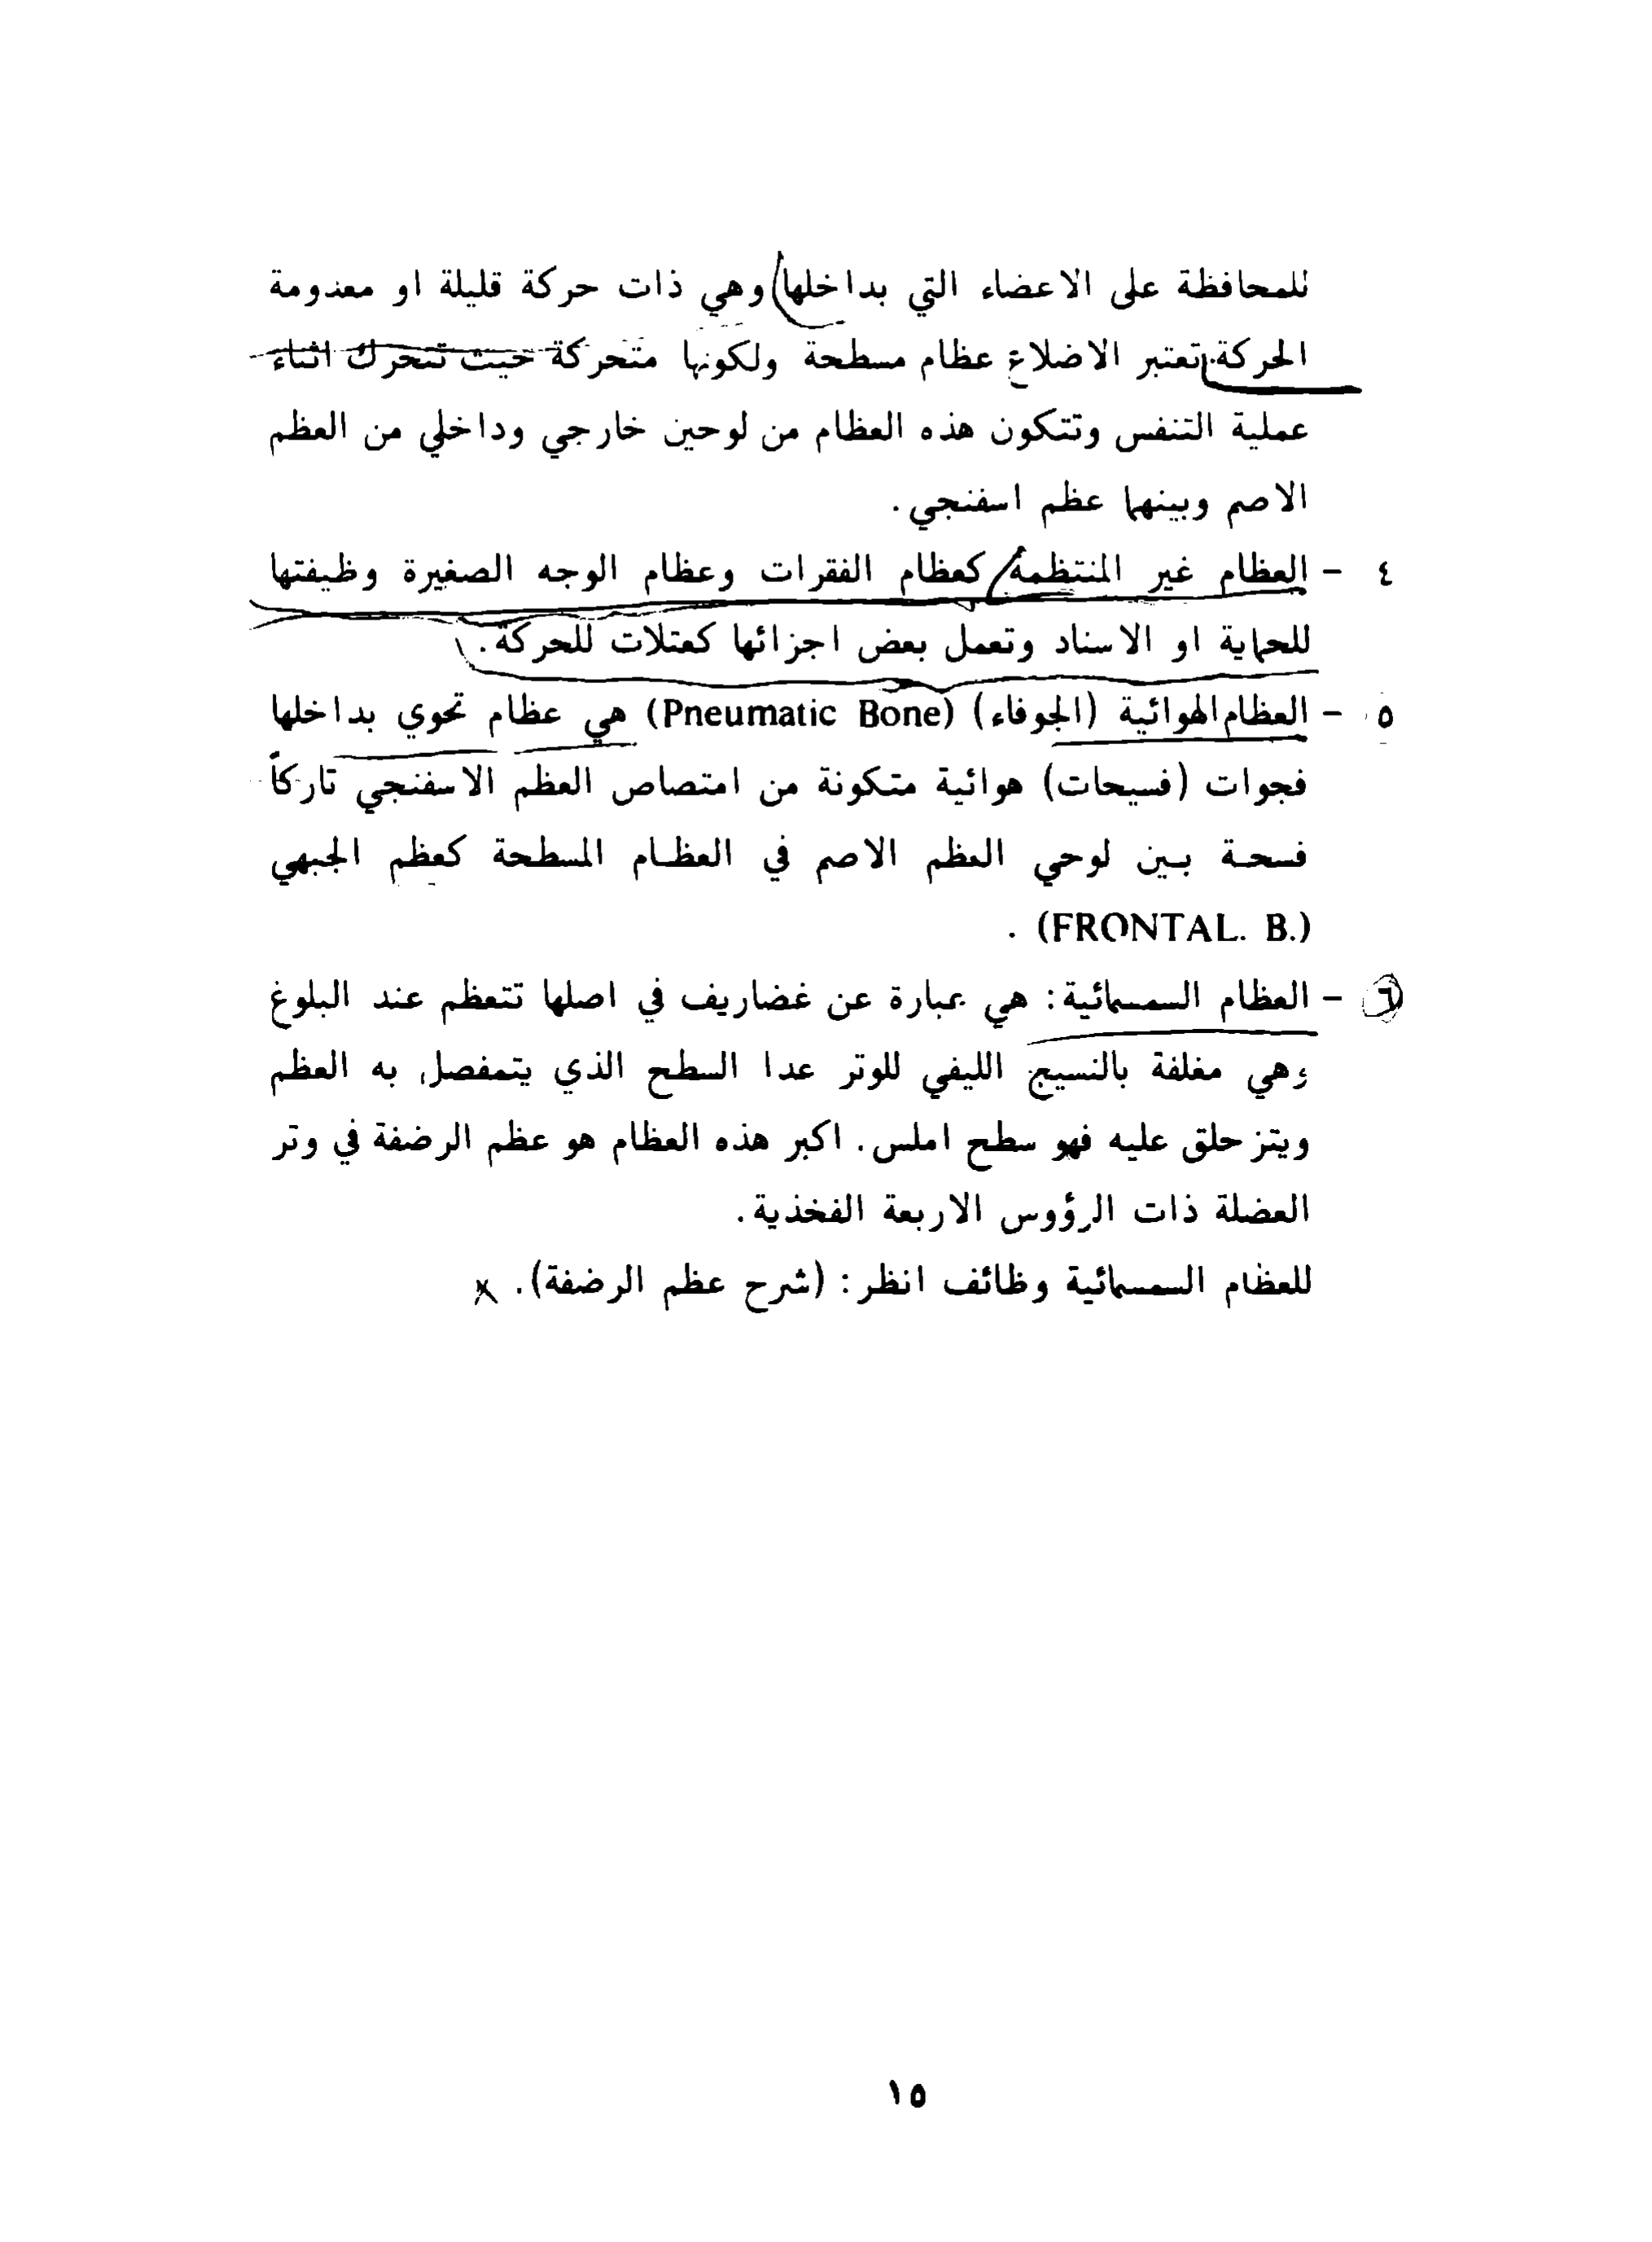 للمحافظة على الاعضاء التي بداخلها وهي ذات حركة قليلة او معدومة
الحركة. تعتبر الاضلاع عظام مسطحة ولكونها متحركة حيث تتحرك اثناء
عملية التنفس وتتكون هذه العظام من لوحين خارجي وداخلي من العظم
الاصم وبينهما عظم اسفنجي.
٤ - العظام غير المنتظمة كعظام الفقرات وعظام الوجه الصغيرة وظيفتها
للحماية او الاسناد وتعمل بعض اجزائها كعتلات للحركة.
٥ - العظام الهوائية (الجوفاء) (Pneumatic Bone) هي عظام تحوي بداخلها
فجوات (فسيحات) هوائية متكونة من امتصاص العظم الاسفنجي تاركاً
فسحة بين لوحي العظم الاصم في العظام المسطحة كعظم الجبهي
(FRONTAL. B.) .
٦ - العظام السمسمائية: هي عبارة عن غضاريف في اصلها تتعظم عند البلوغ
وهي مغلفة بالنسيج الليفي للوتر عدا السطح الذي يتمفصل به العظم
ويتزحلق عليه فهو سطح املس. اكبر هذه العظام هو عظم الرضفة في وتر
العضلة ذات الرؤوس الاربعة الفخذية.
للعظام السمسمائية وظائف انظر: (شرح عظم الرضفة).
١٥